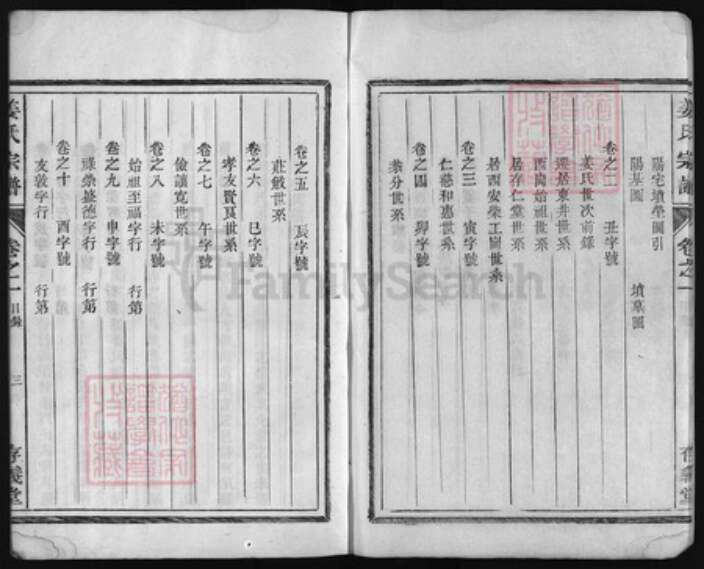 姜氏宗譜
卷之一
存義堂
陽宅墳塋圖引
陽基圖 墳墓圖
卷之二 丑字號
姜氏世次前錄
遷居東井世系
西崗始祖世系
居存仁堂世系
居西安柴工圳世系
卷之三 寅字號
仁慈和惠世系
卷之四 卯字號
恭分世系
卷之五 辰字號
莊敏世系
卷之六 巳字號
孝友賢良世系
卷之七 午字號
儉讓寬世系
卷之八 未字號
始祖至福字行 行第
卷之九 申字號
祿榮盛德字行 行第
卷之十 酉字號
友敦字行 行第
姜氏宗譜
卷之一
目錄
三
存義堂
FamilySearch